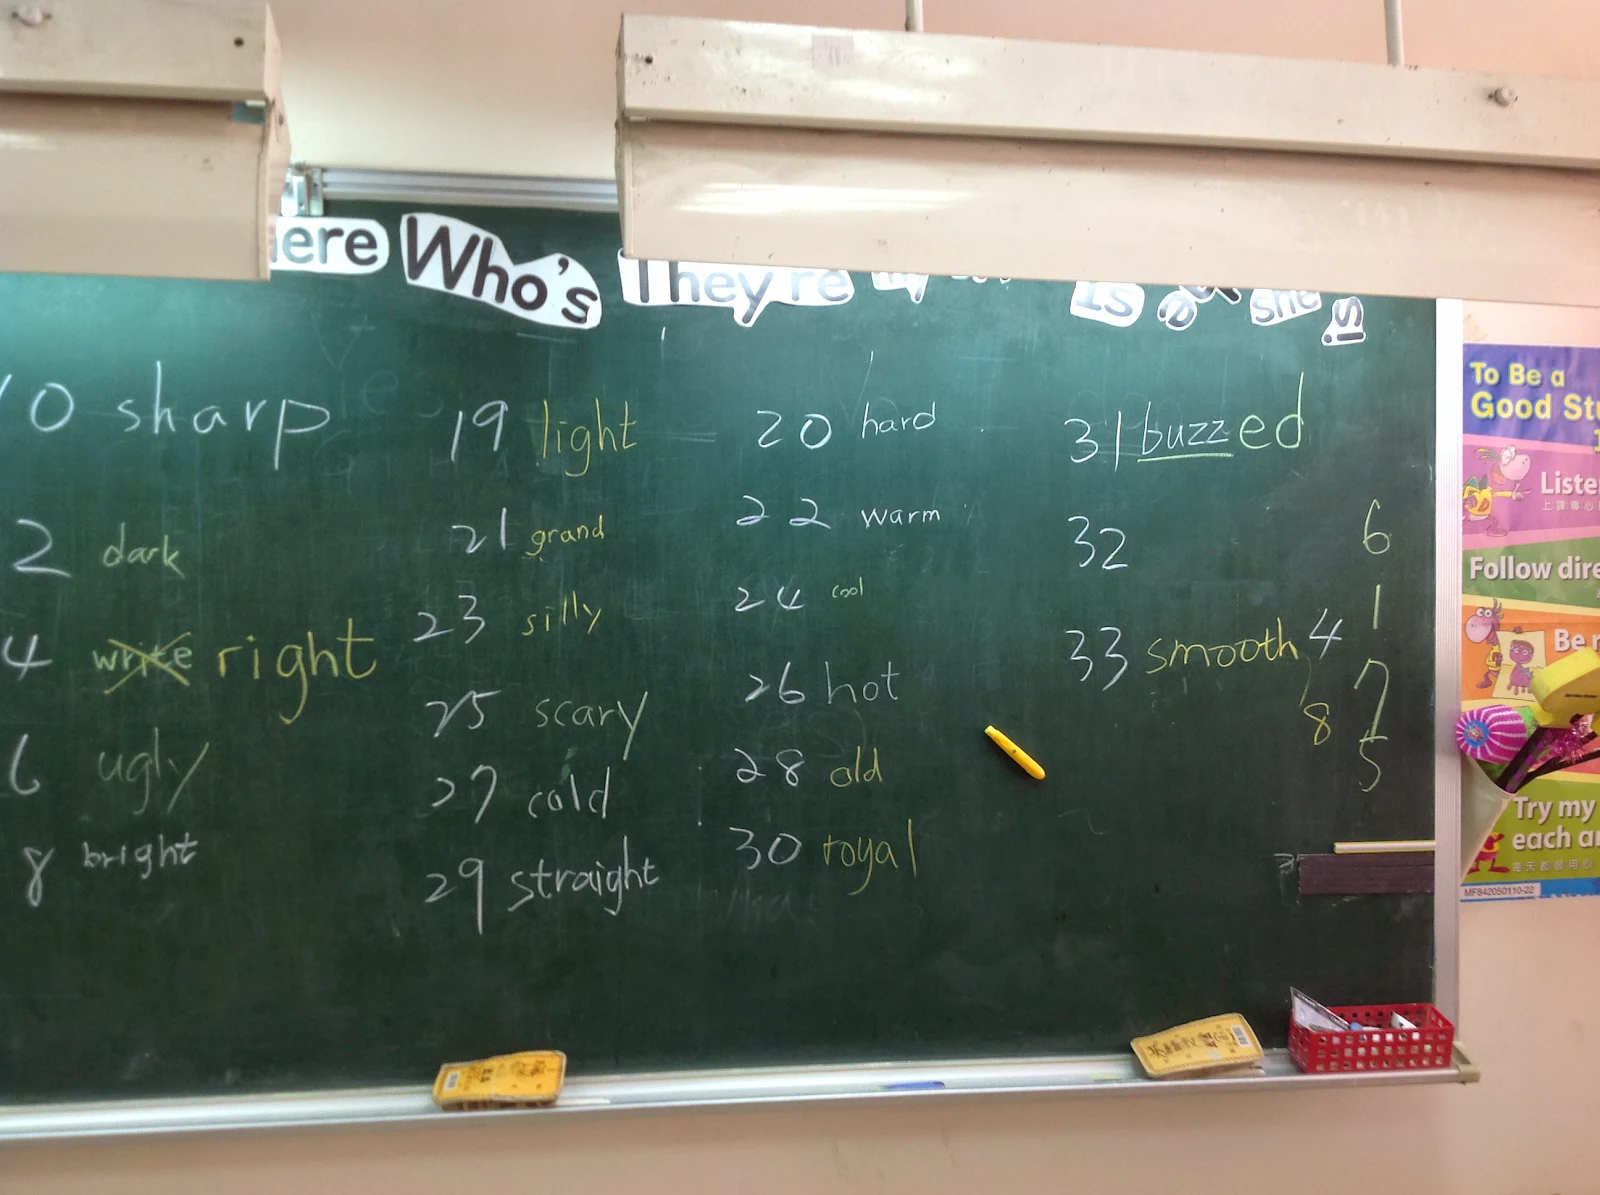 ere Who's They're is she is
10 sharp
2 dark
4 write right
6 ugly
8 bright
19 light
21 grand
23 silly
25 scary
27 cold
29 straight
20 hard
22 warm
24 cool
26 hot
28 old
30 royal
31 buzzed
32
33 smooth 4
8
6
1
7
5
To Be a
Good Stu
Liste
上課專心
Follow dire
Be
Try my
each a
每天都很用心
MF842050110-22